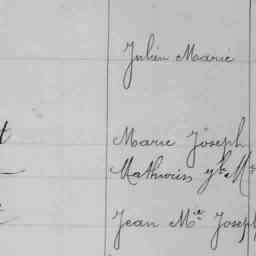 Julien Marie
t
Marie Joseph
Mathurin
Jean Mie Joseph